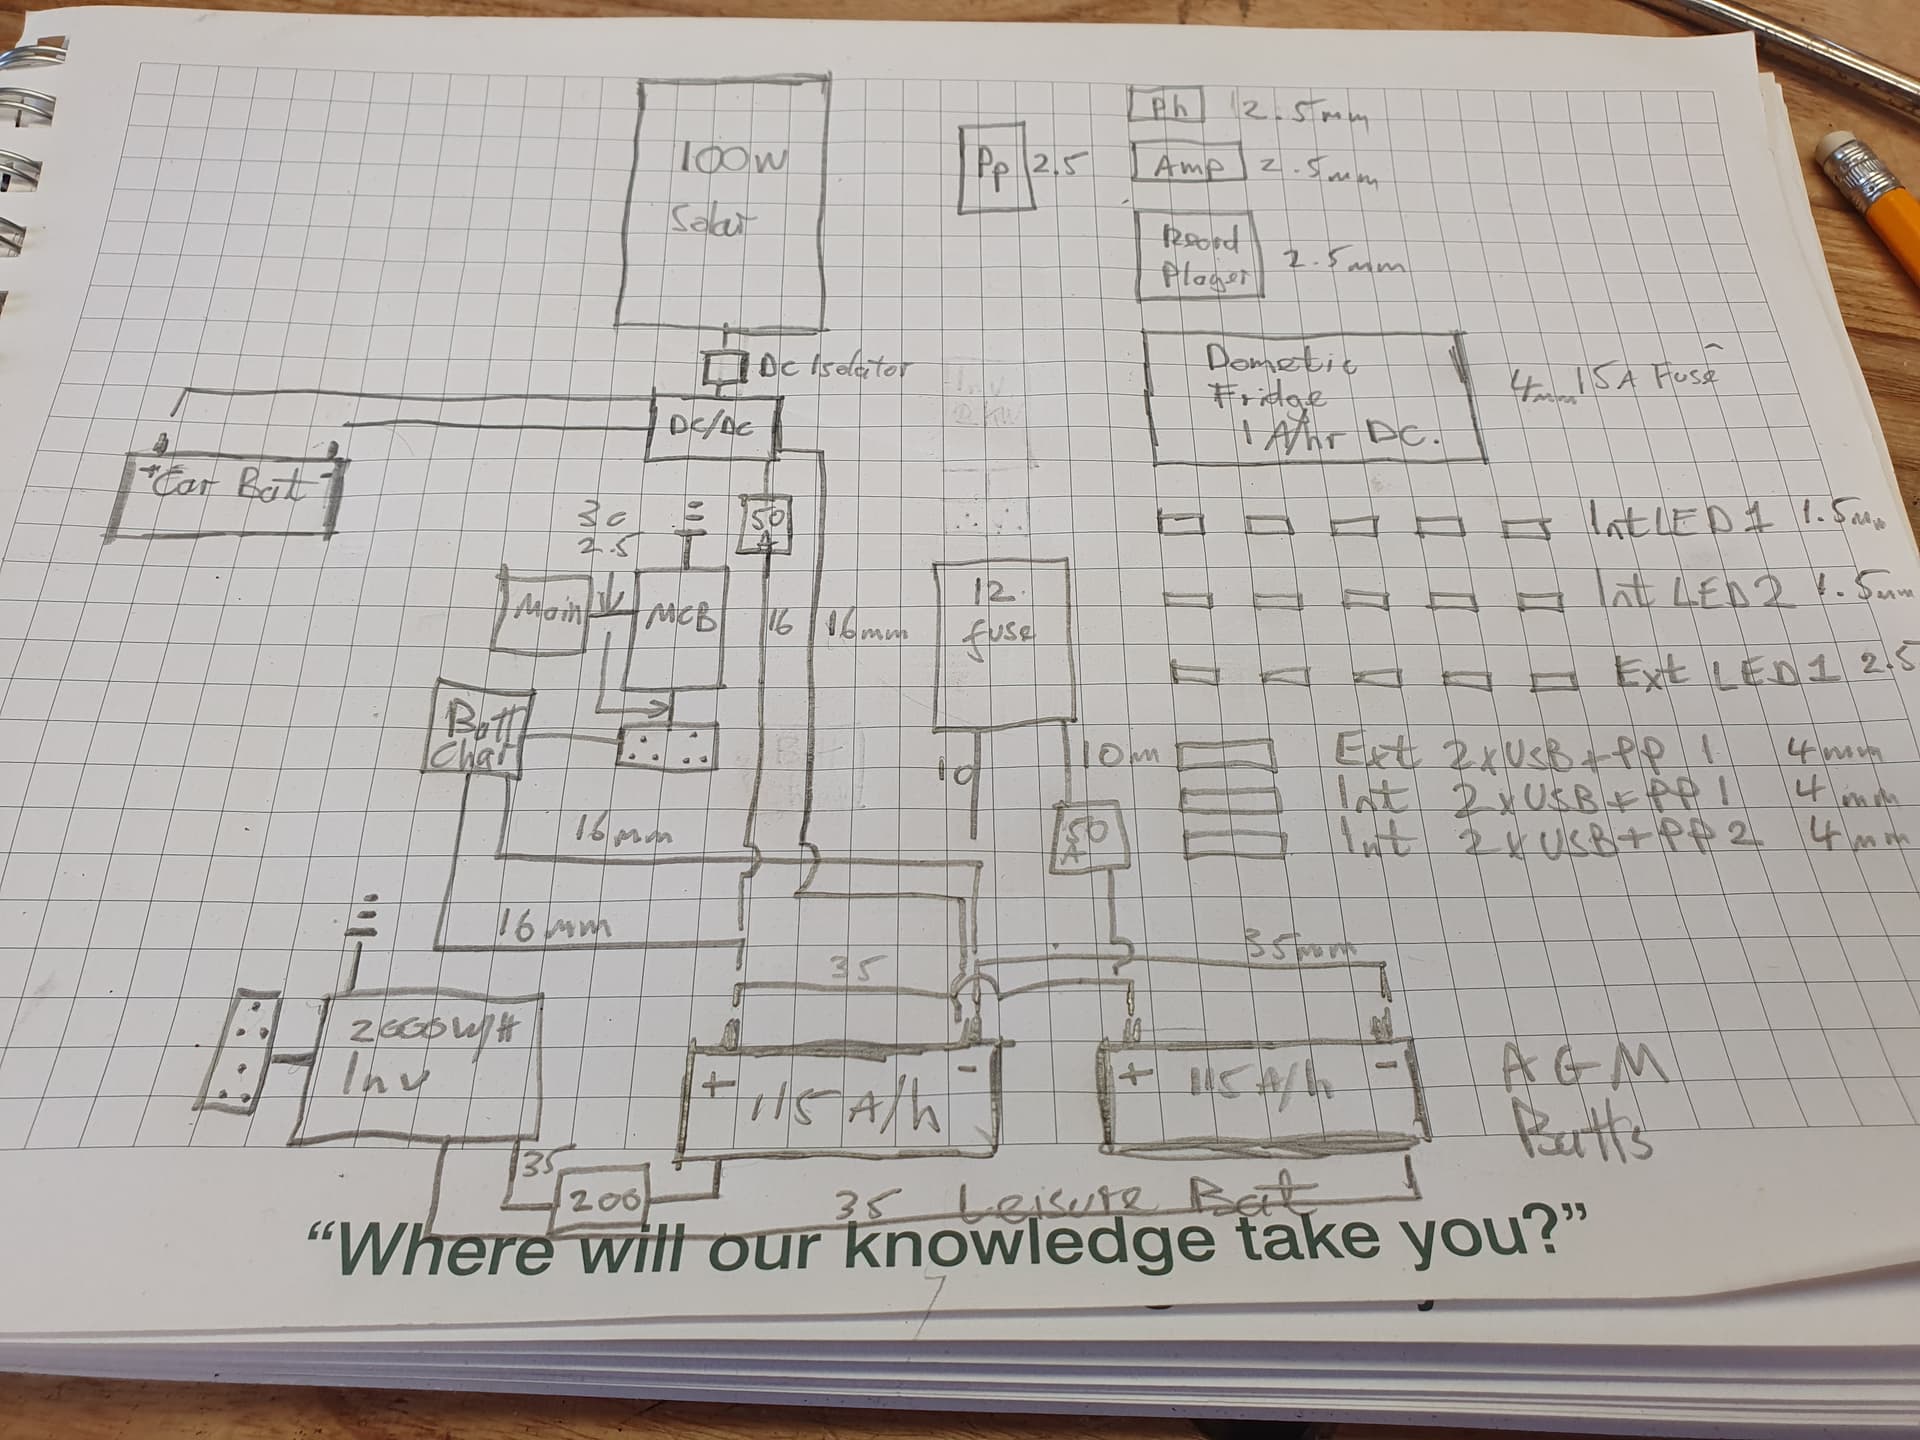 100W
Solar
Pp 2.5
Ph 2.5mm
Amp 2.5mm
Record
Player
2.5mm
DC Isolator
Dometic
Fridge
1 A/hr DC.
4mm 15A Fuse
DC/DC
+ Car Bat -
50
A
2.5
Main
MCB
16
16mm
12.
fuse
Int LED 1 1.5mm
Int LED 2 1.5mm
Ext LED 1 2.5
Batt
Char
10
10m
50
A
Ext 2xUSB+PP 1 4mm
Int 2xUSB+PP 1 4mm
Int 2xUSB+PP 2 4mm
16mm
16mm
35
35mm
2000W/H
Inv
+ 115 A/h -
+ 115 A/h -
AGM
Batts
35
200
35 Leisure Bat
“Where will our knowledge take you?”